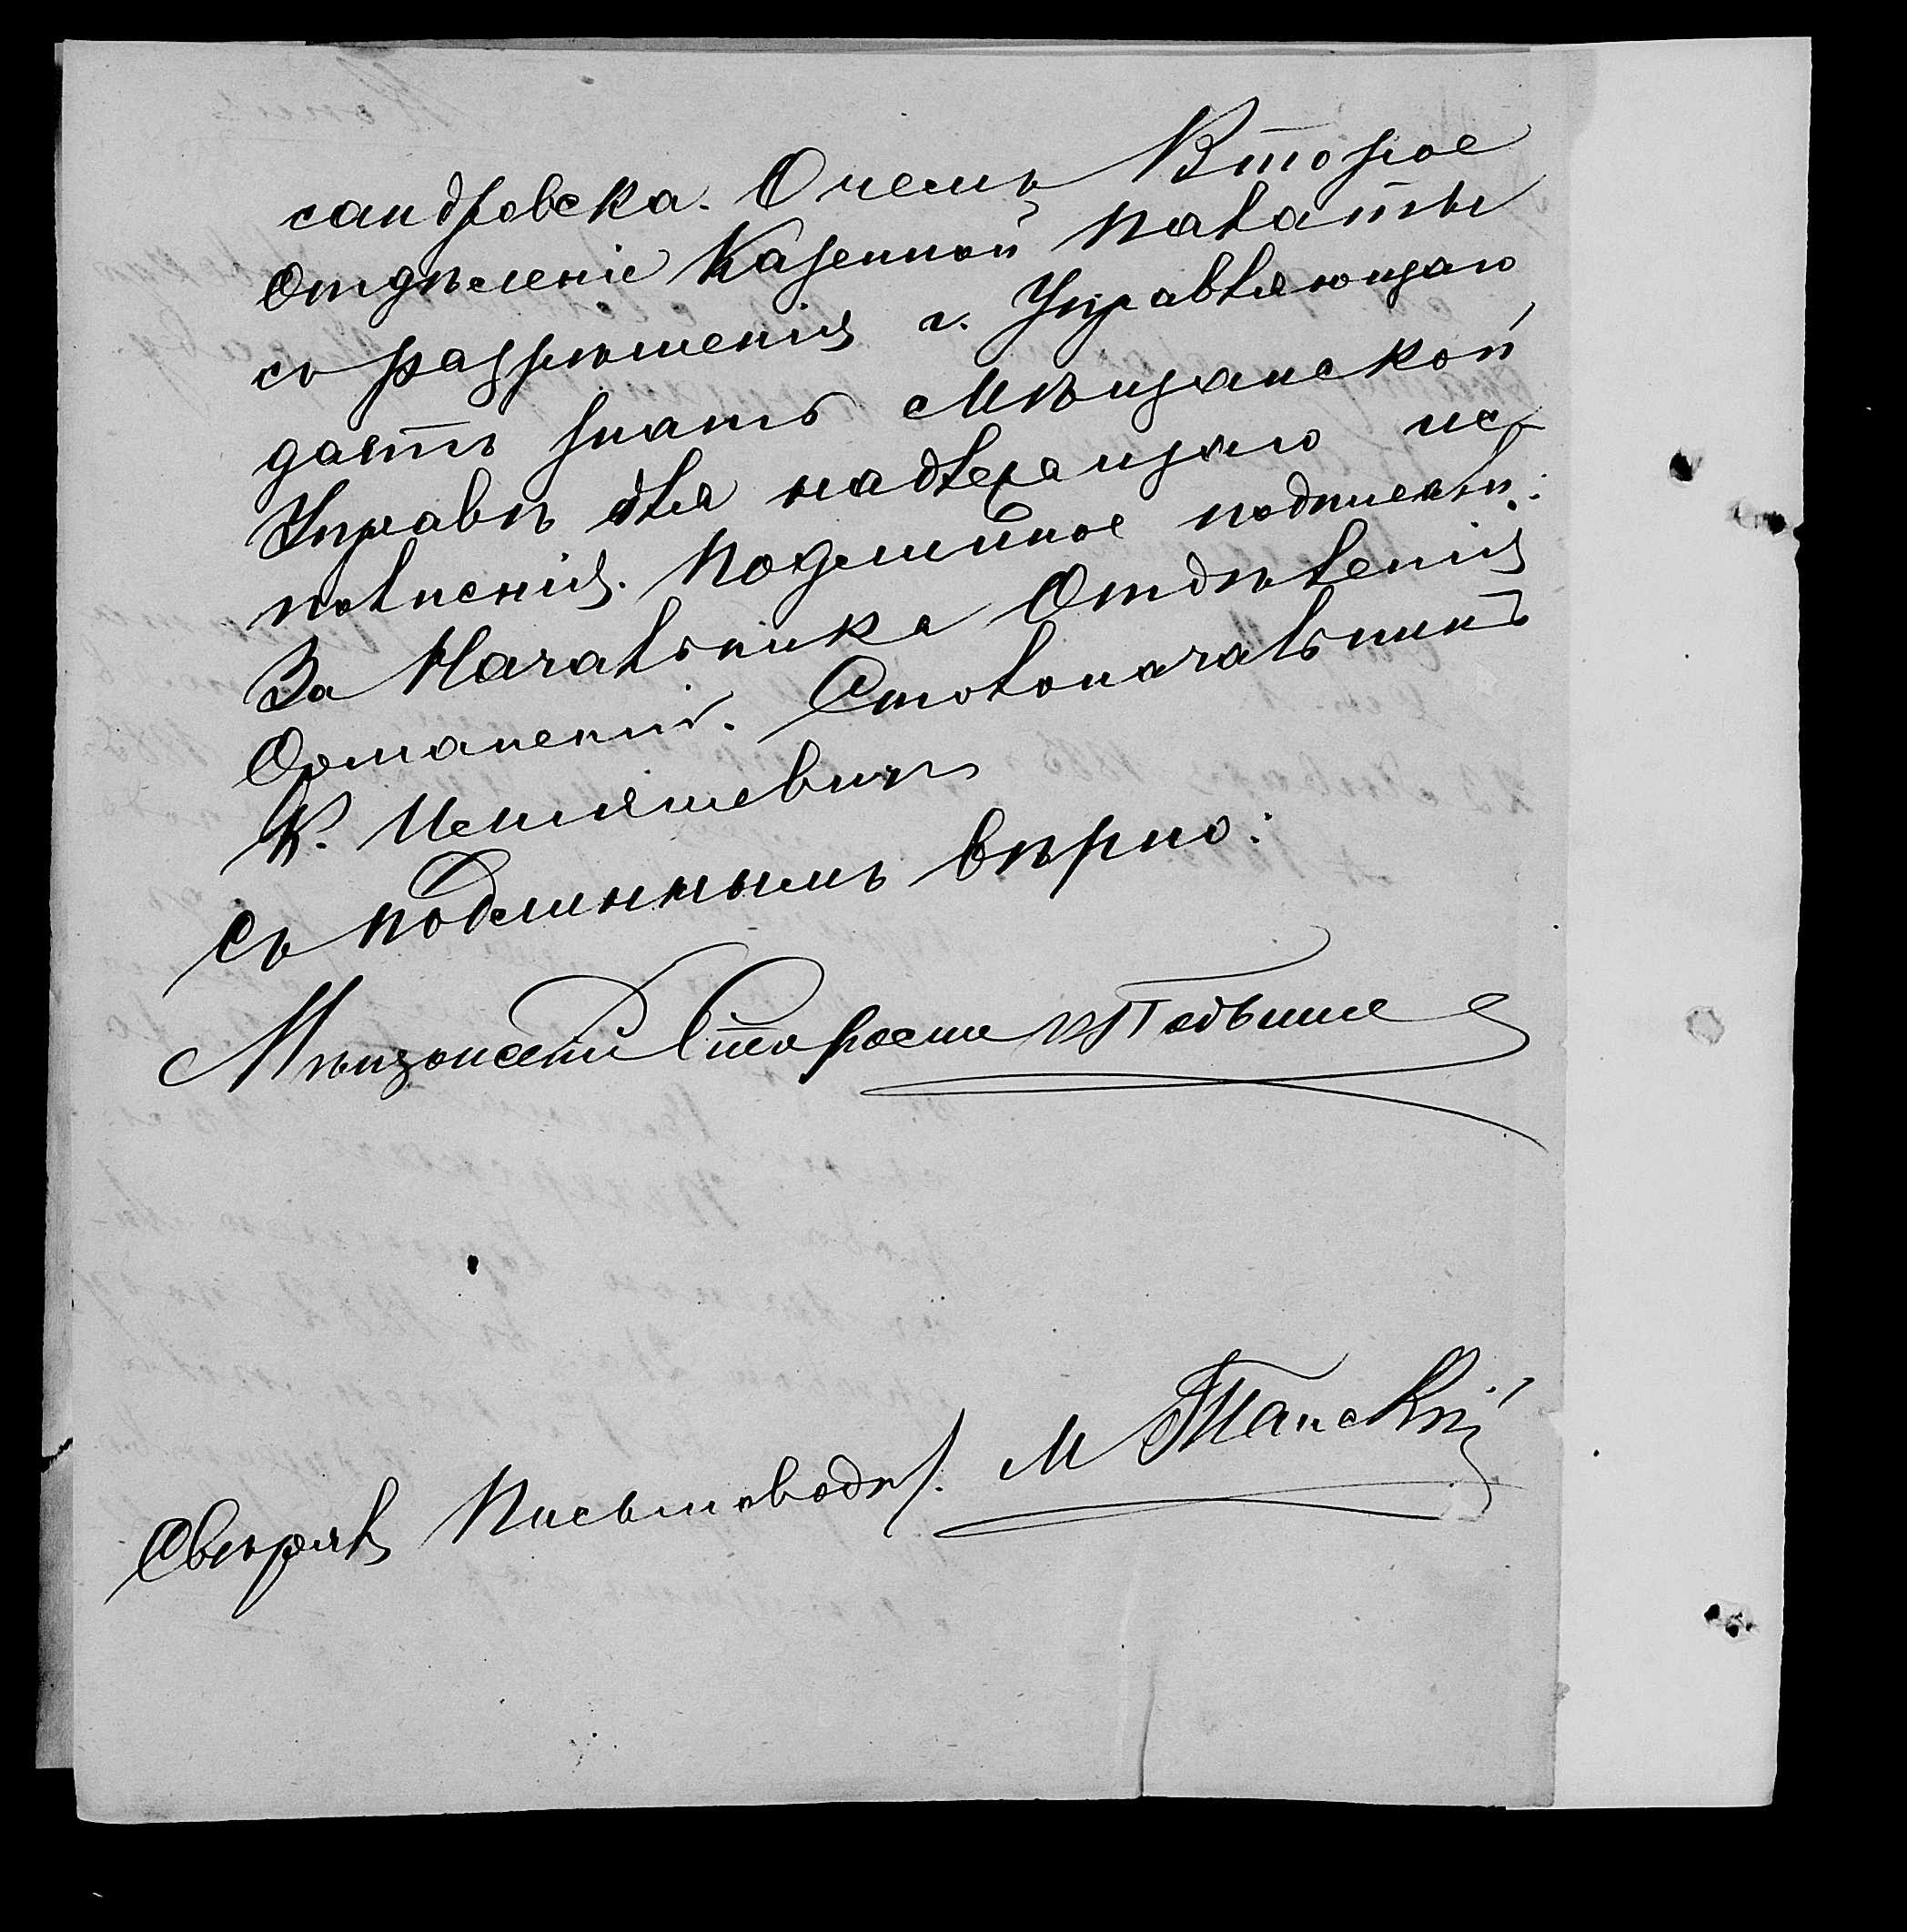 сандровска. О чемъ Второе
Отдѣленіе Казенной Палаты
съ разрѣшенія г. Управляющаго
даетъ знать Мѣщанской
Управѣ для надлежащаго ис-
полненія. Подлинное подписали:
За Начальника Отдѣленія
Столоначальникъ
К.
Съ подлиннымъ вѣрно:
Мѣщанскій Староста
Свѣрялъ Письмоводт. М